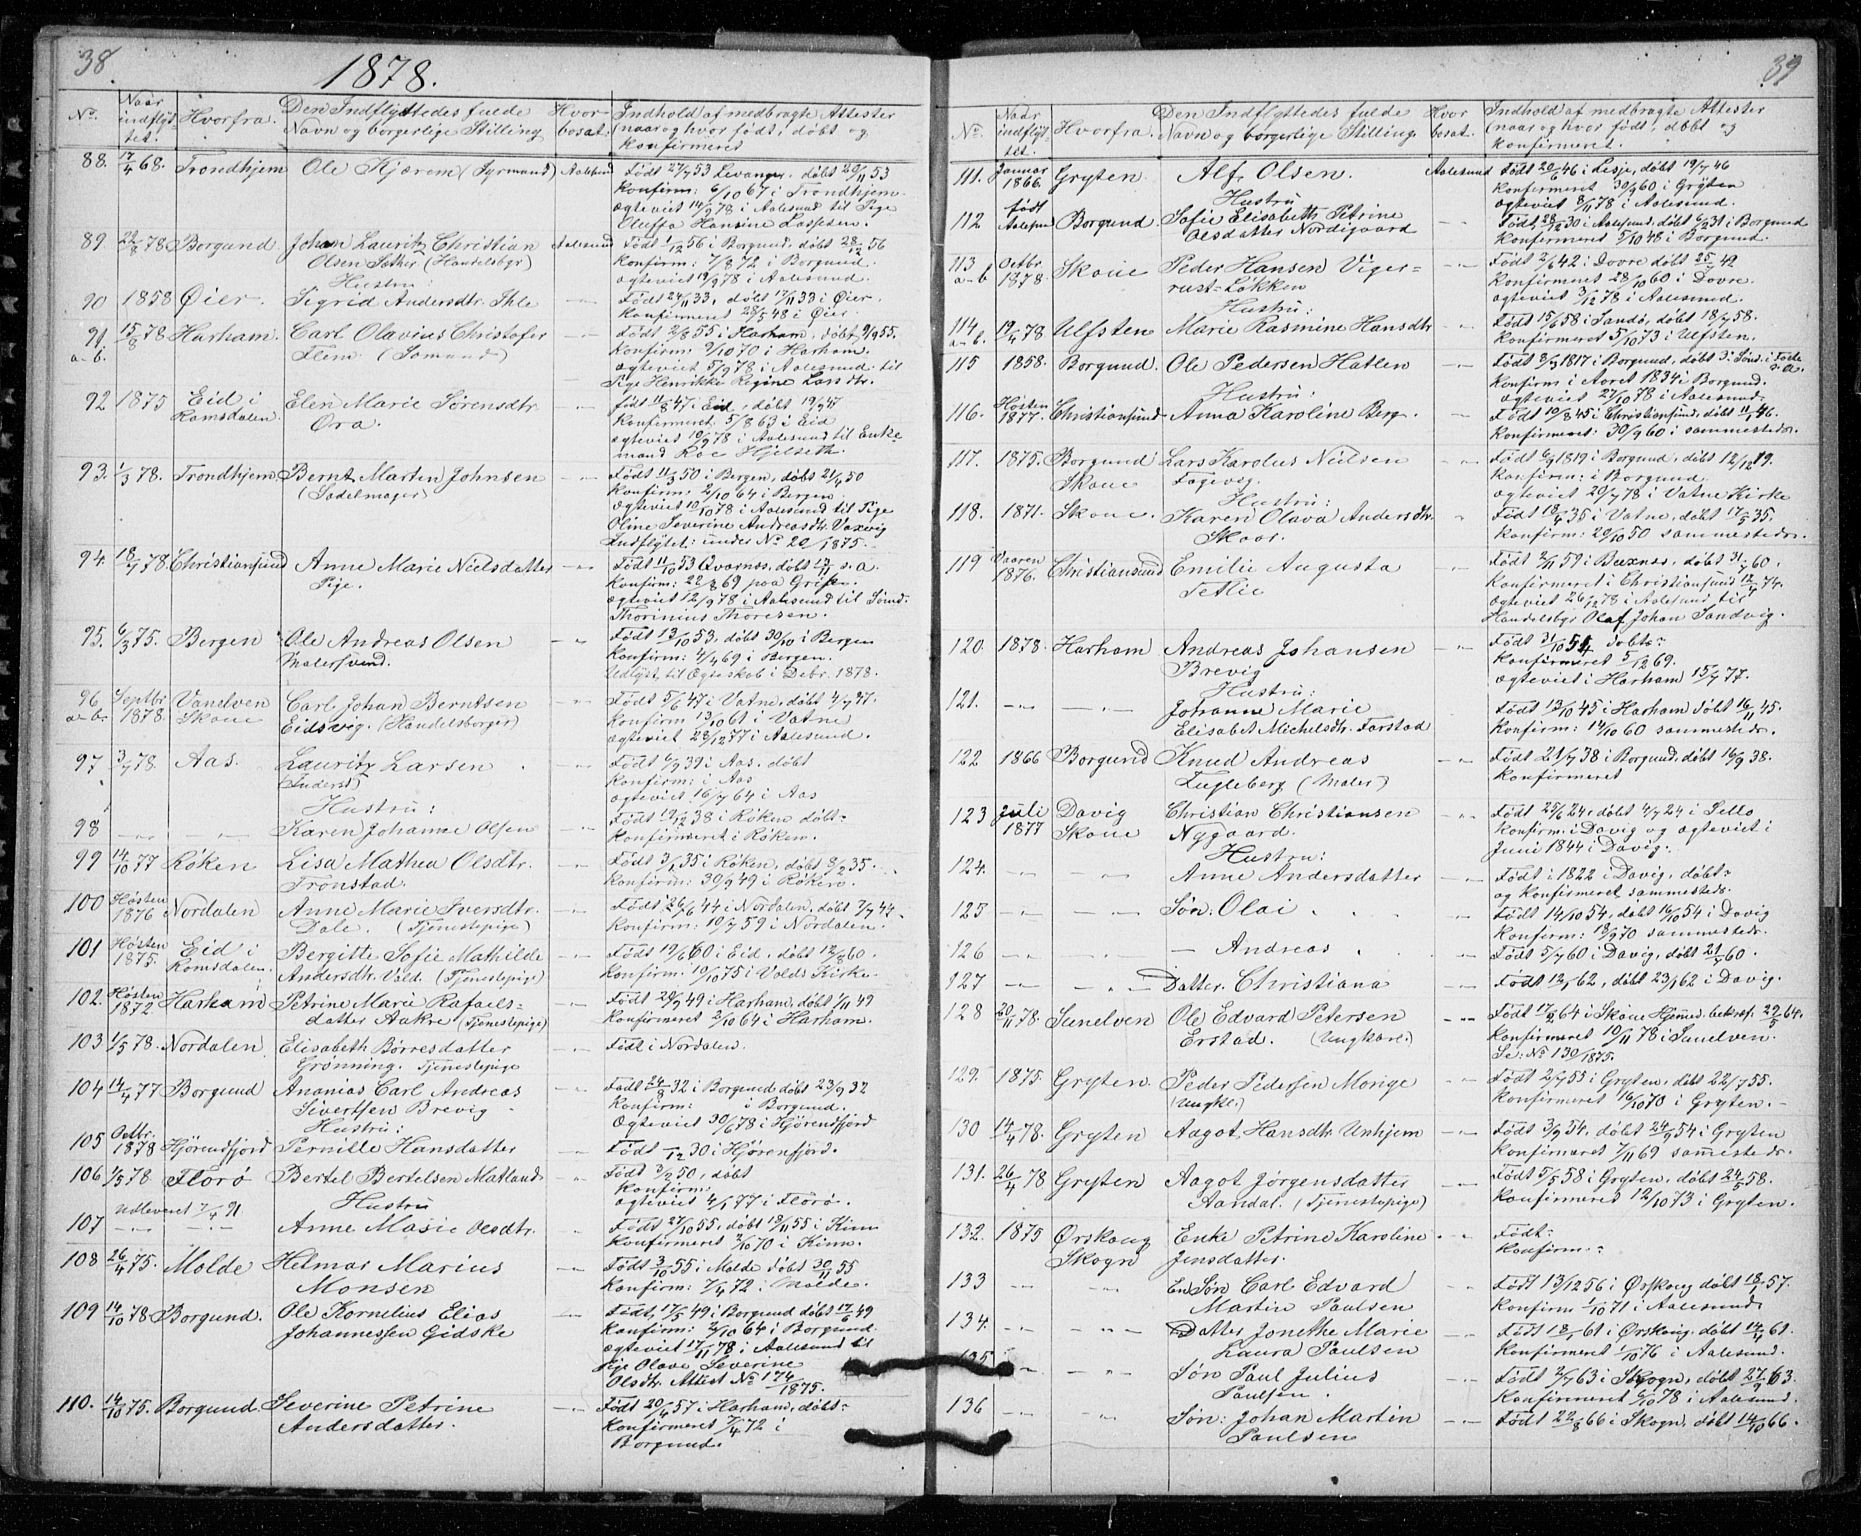 38.
1878.
No. Naar indflyttet. Hvorfra. Den Indflyttedes fulde Navn og borgerlige Stilling Hvor bosat. Indhold af medbragte Attester (naar og hvor født, døbt og konfirmeret
88. 17/4 68. Trondhjem Ole Kjærem (Styrmand) Aalesund Født 27/7 53 Levanger. døbt 20/11 53
Konfirm: 6/10 67 i Trondhjem.
ægteviet 14/9 78 i Aalesund til Pige
Oluffa Hansine Lassesen.
89. 22/8 78 Borgund. Johan Lauritz Christian Aalesund Født 1/12 56 i Borgund, døbt 28/12 56
Olsen Sæther (Handelsbgr) Konfirm: 7/8 72 i Borgund.
ægteviet 19/9 78 i Aalesund.
Hustru:
90 1858 Øier. Sigrid Andersdtr. Ihle Født 24/11 33, døbt 7/11 33 i Øier.
Konfirmeret 28/5 48 i Øier.
91 a-b. 15/8 78 Harham. Carl Olavius Christofer Født 2/8 55 i Harham, døbt 9/9 55.
Flem (Sømand) Konfirm 9/10 70 i Harham.
ægteviet 5/9 78 i Aalesund til
Pige Henrikke Regine Larsdtr.
92 1875 Eid i Elen Marie Sørensdtr. født 11/8 47 i Eid, døbt 19/9 47
Romsdalen. Ora. Konfirmeret 5/8 63 i Eid
ægteviet 19/9 78 i Aalesund til Enke
mand Roe Hjelseth.
93. 1/3 78. Trondhjem Bernt Marten Johnsen Født 11/3 50 i Bergen, døbt 21/4 50
(Sadelmager) Konfirm 2/10 64 i Bergen
ægteviet 10/10 78 i Aalesund til Pige
Oline Severine Andreasdtr. Vaxvig
Indflyttet: under No 20/1875.
94. 18/7 78 Christiansund Anne Marie Nielsdatter Født 11/10 53 Qvarnes, døbt 13/11 s.a.
Pige. Konfirm: 22/8 69 paa Gripen.
ægteviet 12/9 78 i Aalesund til Sømd.
Thorinius Thoresen.
95. 6/3 75. Bergen Ole Andreas Olsen Født 13/10 53, døbt 30/10 i Bergen
Malersvend. Konfirm: 4/4 69 i Bergen.
Udlyst, til Ægteskab i Debr. 1878.
96 a-b. Septbr 1878. Vanelven Carl Johan Berntsen Født 5/6 47 i Vatne, døbt 4/7 47.
Skoue Eidsvig. (Handelsborger) Konfirm 13/10 61 i Vatne
ægteviet 28/12 77 i Aalesund.
97 3/7 78. Aas. Lauritz Larsen Født 6/9 39 i Aas. døbt
(Inderst) Konfirm: i Aas
ægteviet 16/7 64 i Aas
Hustru:
98 Karen Johanne Olsen Født 19/12 38 i Røken døbt
Konfirmeret i Røken.
99 14/10 77 Røken Lisa Mathea Olsdtr. Født 3/1 35 i Røken, døbt 8/2 35.
Tronstad. Konfirm: 30/9 49 i Røken.
100 Høsten 1876 Nordalen Anne Marie Iversdtr. Født 26/6 44 i Nordalen, døbt 7/7 44.
Dale. (Tjenestepige) Konfirm: 10/7 59 i Nordalen.
101 Høsten 1875. Eid i Bergitte Sofie Mathilde Født 19/6 60 i Eid, døbt 12/8 60.
Romsdalen. Andersdtr. Vold. (Tjenestepige) Konfirm. 10/10 75 i Volds Kirke.
102. Høsten 1872. Harham Petrine Marie Rafaels- Født 20/9 49 i Harham, døbt 1/11 49
datter Aakre (Tjenestepige) Konfirmeret 2/10 64 i Harham.
103 1/5 78. Nordalen Elisabeth Børresdatter Født i Nordalen.
Grønning. Tjenestepige
104 14/4 77 Borgund Ananias Carl Andreas Født 24/8 32 i Borgund døbt 23/9 32
Sivertsen Brevig Konfirm: i Borgund.
Ægteviet 30/6 78 i Hjørendfjord
Hustru:
105 Octbr. 1878 Hjørendfjord Pernille Hansdatter Født /12 30 i Hjørenfjord.
106 1/5 78 Florø Bertel Bertelsen Matland Født 3/2 50, døbt
Konfirm:
ægteviet 4/1 77 i Florø.
Udleveret 7/4 91 Hustru
107 Anne Marie Olsdtr. Født 27/10 55, døbt 18/11 55 i Kinn
Konfirmeret 2/10 70 i Kinn.
108 26/4 75. Molde Helmar Marius Født 3/10 55 i Molde døbt 30/11 55
Monsen Konfirm: 7/4 72 i Molde.
109 14/10 78 Borgund. Ole Kornelius Elias Født, 17/5 49 i Borgund døbt 17/6 49
Johannessen Gidske Konfirm: 2/10 64 i Borgund
ægteviet 17/11 78 i Aalesund til
Pige Olave Severine
Olsdtr. Attest No 174/1875.
110. 14/10 75. Borgund. Severine Petrine Født 20/4 57 i Harham, døbt
Andersdatter. Konfirmeret 7/4 72 i
Borgund.
39
No. Naar indflyttet. Hvorfra. Den Indflyttedes fulde Navn og borgerlige Stilling. Hvor bosat. Indhold af medbragte Attester (naar og hvor født, døbt og konfirmeret.
111. Januar 1866. Gryten Alf Olsen. Aalesund Født 20/6 46 i Lesje, døbt 19/7 46
Konfirmeret 30/9 60 i Gryten
ægteviet 8/11 78 i Aalesund.
Hustru
112 født Aalesund Borgund Sofie Elisabeth Petrine Født 28/12 30 i Aalesund, døbt 6/2 31 i Borgund
Olsdatter Nordigaard Konfirmeret 5/10 48 i Borgund.
113 a-b Octbr. 1878. Skoue Peder Hansen Viger- Født 2/6 42 i Dovre døbt 25/7 42
rust-Løkken Konfirmeret 28/10 60 i Dovre.
ægteviet 3/12 78 i Aalesund.
Hustru:
114 a-b. 19/4 78 Ulfsten Marie Rasmine Hansdtr Født 15/6 58 i Sandø, døbt 18/7 58.
Konfirmeret 5/10 73 i Ulfsten.
115 1858. Borgund. Ole Pedersen Hatlen Født 8/3 1817 i Borgund, døbt 3. Sønd. i Faste s.a.
Konfirm i Aaret 1834 i Borgund.
ægteviet 27/10 78 i Aalesund.
Hustru:
116. Høsten 1877. Christiansund Anna Karoline Berg. Født 10/8 45 i Christiansund, døbt 11/1 46.
Konfirmeret: 30/9 60 i sammestedr.
117. 1875. Borgund Lars Karolus Nielsen Født 6/9 1819 i Borgund, døbt 12/12 19.
Skoue Fagevig. Konfirm: i Borgund
ægteviet 20/7 78 i Vatne Kirke
Hustru:
118. 1871. Skoue. Karen Olava Andersdtr. Født 18/4 35 i Vatne, døbt 17/5 35.
Skaar. Konfirm: 20/10 50 sammestedr.
119 Vaaren 1876. Christiansund Emilie Augusta Født 2/11 59 i Buxnes, døbt 31/7 60.
Tetlie Konfirmeret i Christiansund 12/4 74.
ægteviet 26/12 78 i Aalesund til
Handelsbgr Olaf Johan Sandvig.
120. 1878. Harham Andreas Johansen Født 31/10 54 døbt
Brevig Konfirmeret 5/12 69.
ægteviet i Harham 15/7 77.
Hustru:
121. Johanne Marie Født 13/10 45 i Harham døbt 16/11 45.
Elisabet Michelsdtr. Farstad Konfirm: 14/10 60 sammestedr.
122 1866 Borgund Knud Andreas Født 21/7 38 i Borgund, døbt 16/9 38.
Fugleberg (Maler) Konfirmeret
123 Juli 1877 Davig Christian Christiansen Født 25/6 24, døbt 4/7 24 i Selló
Skoue Nygaard. Konfirm: i Davig og ægteviet i
Juni 1844 i Davig.
Hustru:
124. Anne Andersdatter Født i 1822 i Davig, døbt
og Konfirmeret sammestedr.
125 Søn: Olai Født 14/10 54, døbt 16/10 54 i Davig
Konfirm: 18/9 70 sammestedr.
126 Andreas Født 5/7 60 i Davig, døbt 21/7 60.
127 Datter. Christiana Født 12/1 62, døbt 23/1 62 i Davig.
128 20/11 78. Sunelven Ole Edvard Petersen Født 17/2 64 i Skoue Hjemed. bekræf. 29/5 64.
Erstad. (Ungkarl.) Konfirmeret 10/11 78 i Sunelven.
Se: No 130/1875.
129. 1875. Gryten. Peder Pedersen Monge Født 2/7 55 i Gryten, døbt 22/7 55.
(Ungkl.) Konfirmeret 16/10 70 i Gryten.
130 14/4 78. Gryten Aagot Hansdtr Unhjem Født 3/9 54, døbt 24/9 54 i Gryten
Konfirmeret 7/11 69 sammestedr.
131. 26/4 78 Gryten Aagot Jørgensdatter Født 5/5 58 i Gryten, døbt 24/5 58.
Aandal. (Tjenestepige) Konfirmeret 12/10 73 i Gryten.
132. 1875 Ørskoug Enke Petrine Karoline Født:
Skogn Jensdatter. Konfirm.
133 En Søn Carl Edvard Født 13/12 56 i Ørskoug døbt 18/1 57.
Martin Paulsen Konfirm 1/10 71 i Aalesund
134. Datter Jonethe Marie Født 18/1 61 i Ørskoug, døbt 14/4 61.
Laura Paulsen Konfirmeret 1/10 76 i Aalesund.
135 Søn Paul Julius Født 2/7 63 i Skogn, døbt 27/9 63.
Paulsen. Konfirmeret 6/10 78 i Aalesund.
136 Søn: Johan Martin Født 22/8 66 i Skogn, døbt 14/10 66.
Paulsen